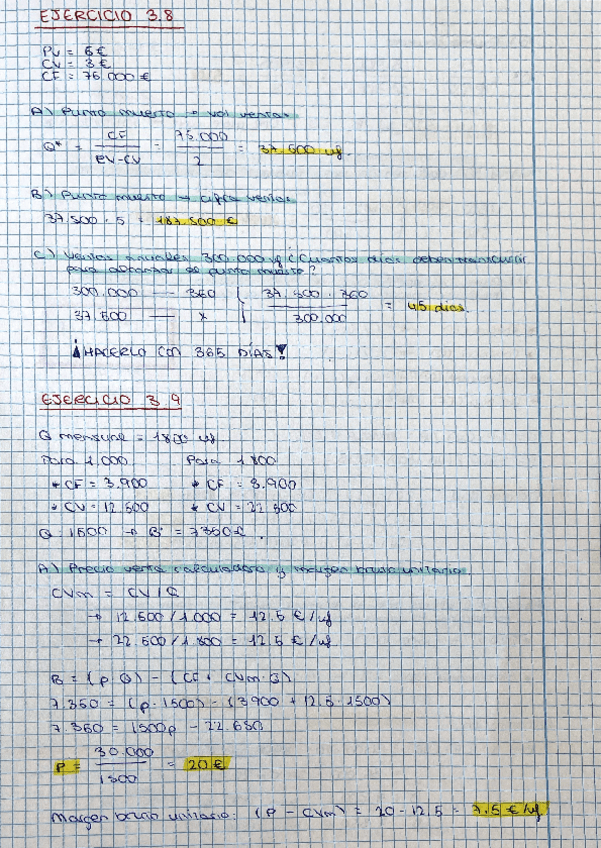 EJERCICIO 3.8
PV = 5€
CV = 3€
CF = 75.000 €
A) Punto muerto → vol ventas
Q* = CF / PV-CV = 75.000 / 2 = 37.500 uf.
B) Punto muerto → cifra ventas
37.500 · 5 = 187.500 €
C) Ventas anuales 300.000 uf ¿Cuantos días deben transcurrir
para alcanzar el punto muerto?
300.000 — 360 37.500 · 360
37.500 — x 300.000 = 45 días.
¡HACERLO CON 365 DÍAS!
EJERCICIO 3.9
Q mensual = 1800 uf.
Para 1.000 Para 1.800
* CF = 3.900 * CF = 3.900
* CV = 12.500 * CV = 22.500
Q 1500 → Bº = 7350€.
A) Precio venta calculadora y margen bruto unitario
CVm = CV/Q
→ 12.500/1.000 = 12.5 €/uf
→ 22.500/1.800 = 12.5 €/uf
B = (p·Q) - (CF + CVm·Q)
7.350 = (p·1500) - (3900 + 12.5·1500)
7.350 = 1500p - 22.650
P = 30.000 / 1500 = 20€
Margen bruto unitario: (P - CVm) = 20 - 12.5 = 7.5 €/uf